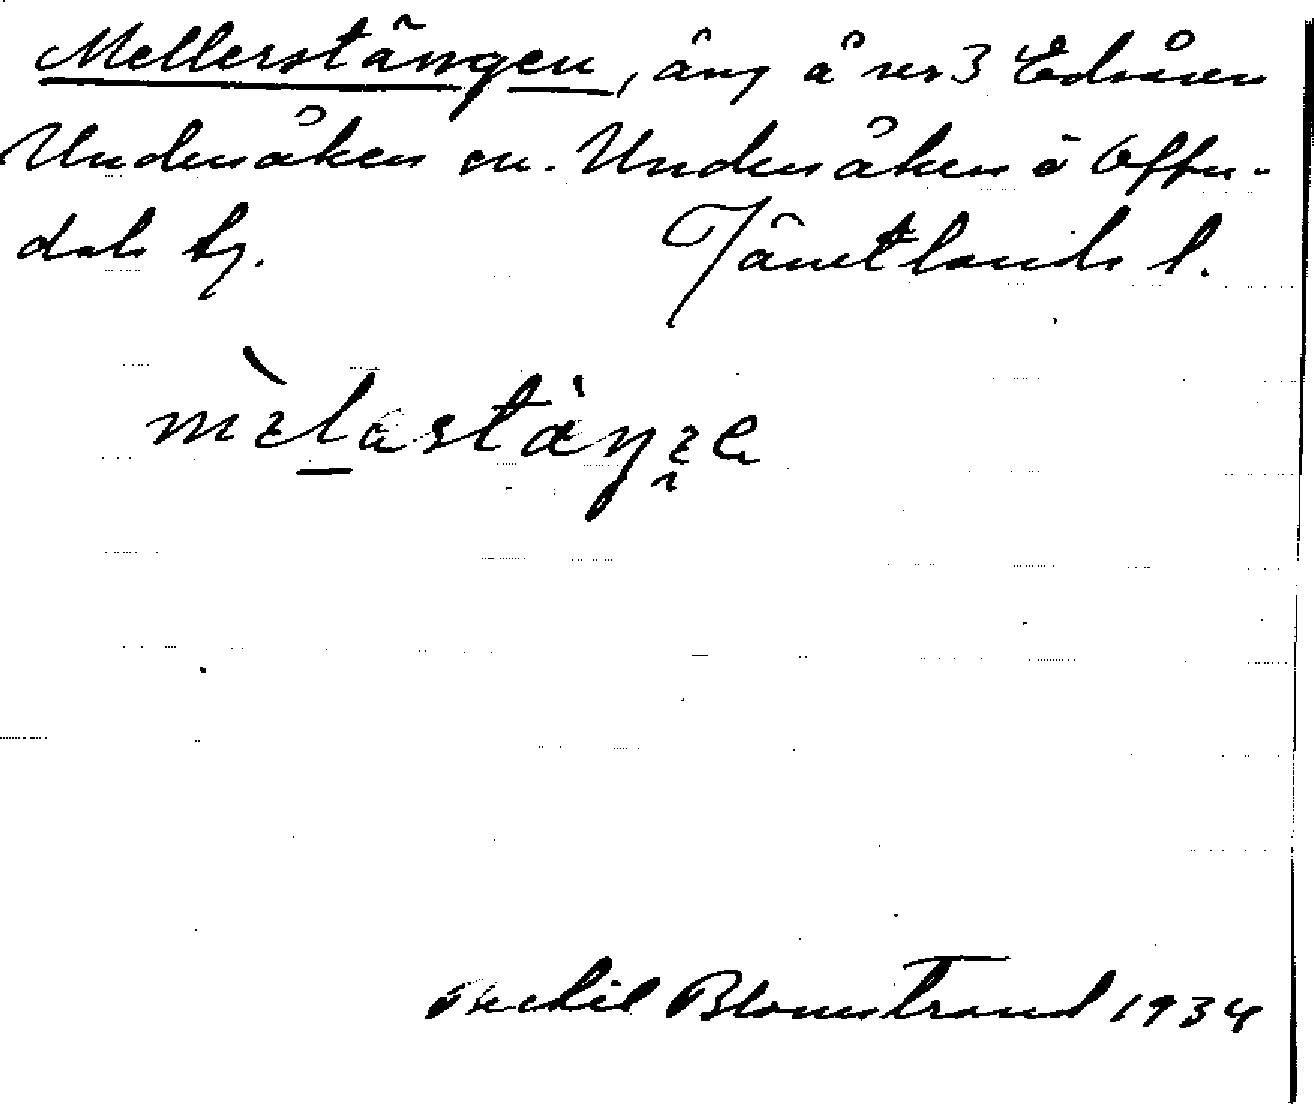 Mellerstängen, äng å nr 3 Edsåsen
Undersåker sn. Undersåkers o Offer-
dals tg. Jämtlands l.
Torkil Blomstrand 1934